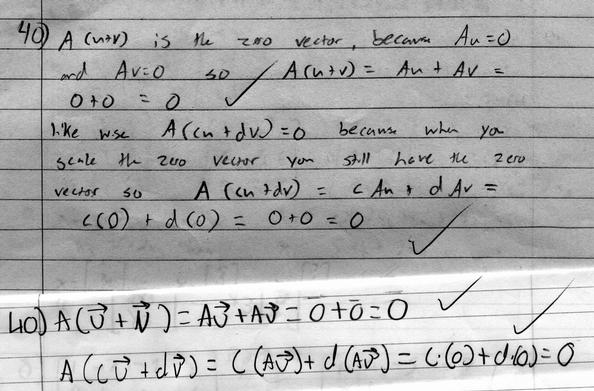 40) A (u+v) is the zero vector, because Au=0
and Av=0 so ✓ A(u+v) = Au + Av =
0+0 = 0 ✓
like wise A(cu + dv) = 0 because when you
scale the zero vector you still have the zero
vector so A (cu +dv) = c Au + d Av =
c(0) + d(0) = 0+0 = 0
✓
40) A(U⃗ + V⃗) = AU⃗ + AV⃗ = 0̄ + 0̄ = 0 ✓
A(cU⃗ + dV⃗) = C(AU⃗) + d(AV⃗) = C·(0) + d·(0) = 0 ✓